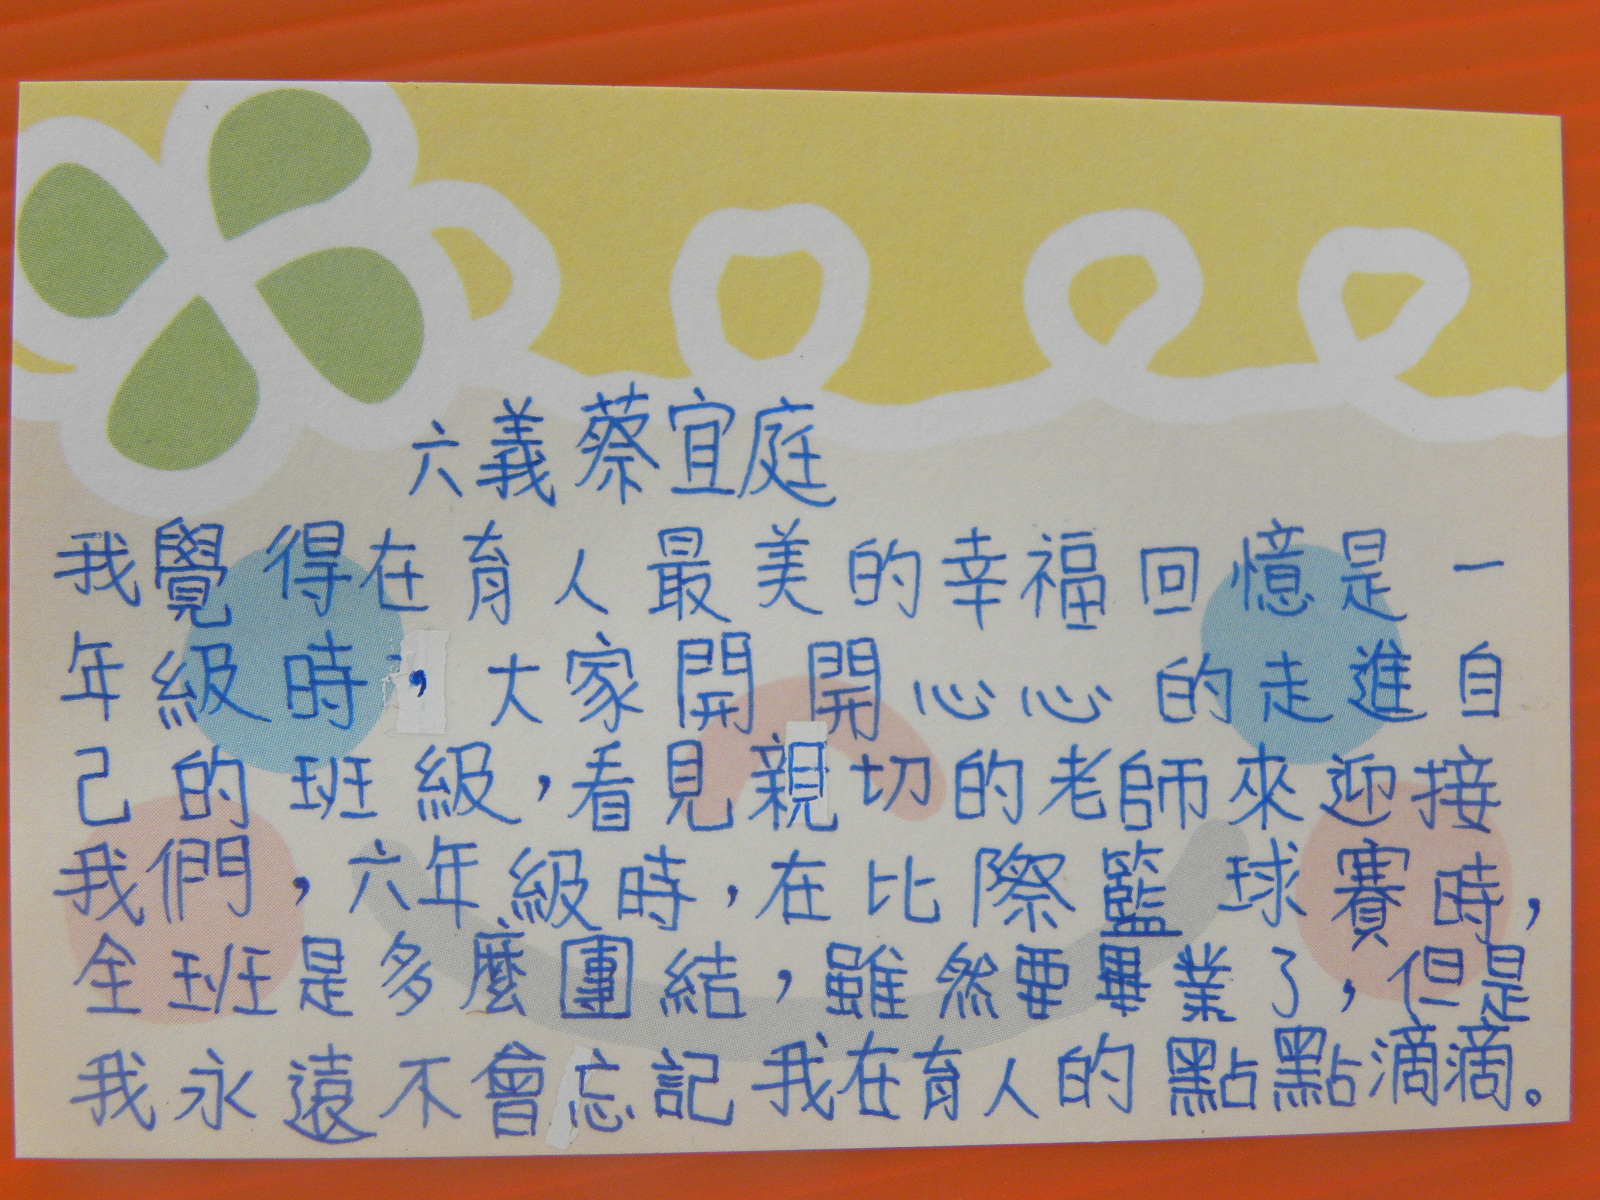 六義蔡宜庭
我覺得在育人最美的幸福回憶是一
年級時，大家開開心心的走進自
己的班級，看見親切的老師來迎接
我們，六年級時，在比際籃球賽時，
全班是多麼團結，雖然要畢業了，但是
我永遠不會忘記我在育人的點點滴滴。